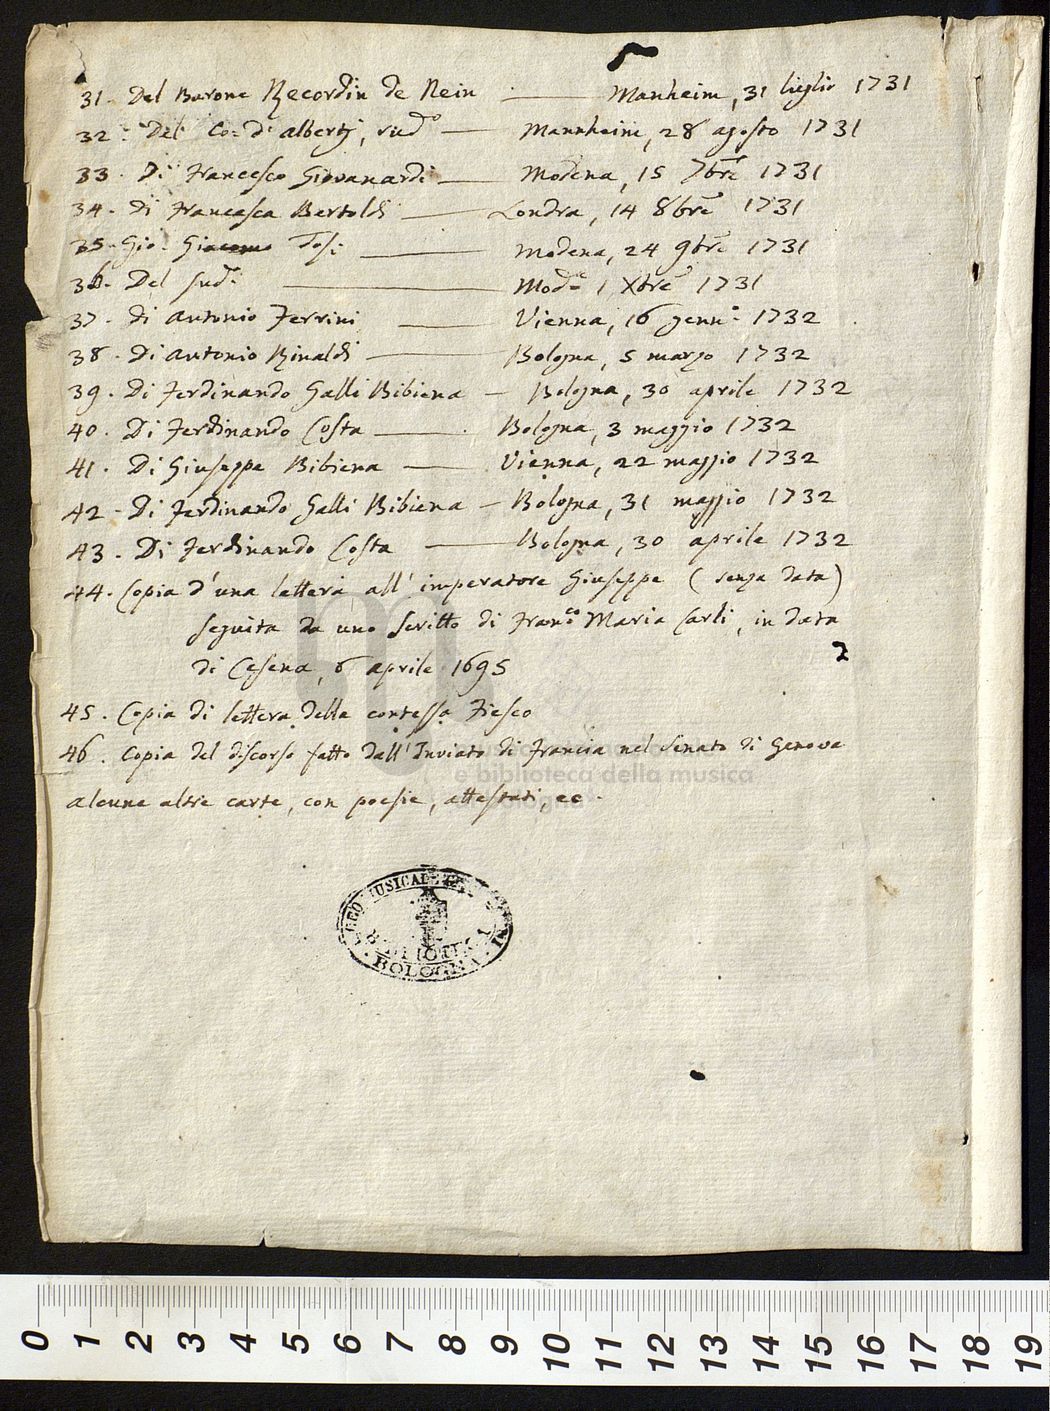 31. Del Barone Recordin de Rein — Manheim, 31 luglio 1731
32. Del Co: d'Alberti, sudº — Mannheim, 28 agosto 1731
33. Di Francesco Giovanardi — Modena, 15 7bre 1731
34. Di Francesca Bertoldi — Londra, 14 8bre 1731
35. Gio. Giacomo Tosi — Modena, 24 9bre 1731
36. Del sudº — Modª 1 Xbre 1731
37. Di Antonio Ferrini — Vienna, 16 gennº 1732
38. Di Antonio Rinaldi — Bologna, 5 marzo 1732
39. Di Ferdinando Galli Bibiena — Bologna, 30 aprile 1732
40. Di Ferdinando Costa — Bologna, 3 maggio 1732
41. Di Giuseppe Bibiena — Vienna, 22 maggio 1732
42. Di Ferdinando Galli Bibiena — Bologna, 31 maggio 1732
43. Di Ferdinando Costa — Bologna, 30 aprile 1732
44. Copia d'una lettera all'imperatore Giuseppe (senza data)
seguita da uno scritto di Franco Maria Carli, in data
di Cesena, 6 aprile 1695
2
45. Copia di lettera della contessa Fiesco
46. Copia del discorso fatto dall'Inviato di Francia nel Senato di Genova
e biblioteca della musica
Alcune altre carte, con poesie, attestati, ec.
LICEO MUSICALE
BIBLIOTECA
BOLOGNA
0 1 2 3 4 5 6 7 8 9 10 11 12 13 14 15 16 17 18 19